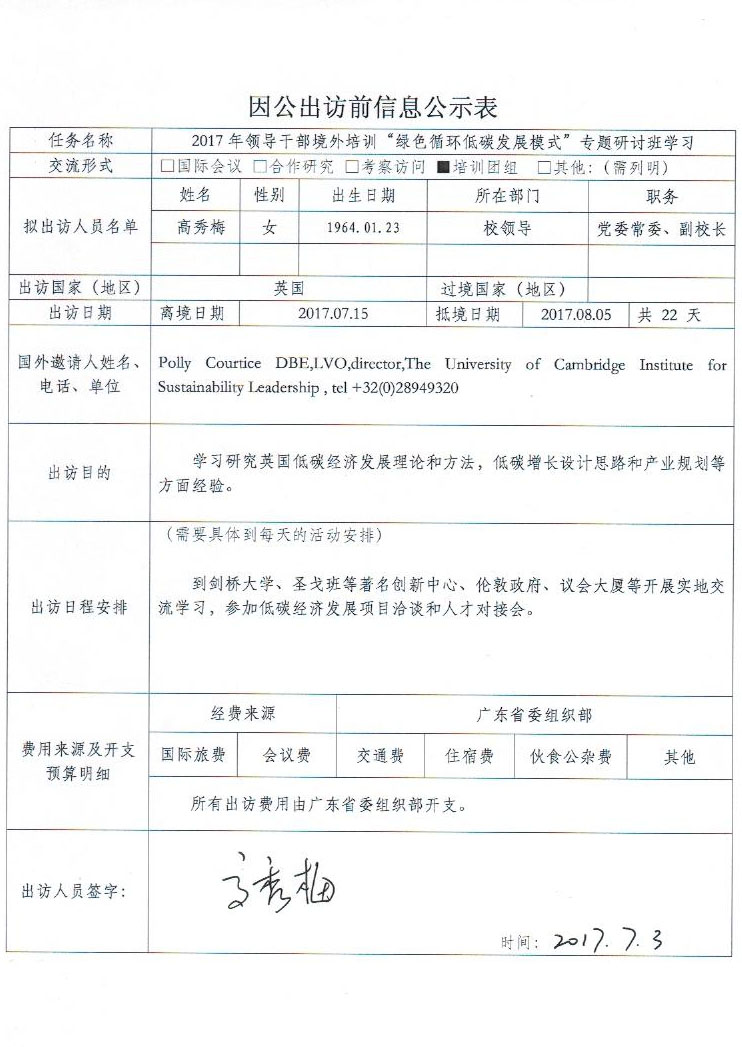 因公出访前信息公示表
任务名称 2017年领导干部境外培训“绿色循环低碳发展模式”专题研讨班学习
交流形式 □国际会议 □合作研究 □考察访问 ■培训团组 □其他:(需列明)
拟出访人员名单 姓名 性别 出生日期 所在部门 职务
高秀梅 女 1964.01.23 校领导 党委常委、副校长
出访国家(地区) 英国 过境国家(地区)
出访日期 离境日期 2017.07.15 抵境日期 2017.08.05 共 22 天
国外邀请人姓名、
电话、单位
Polly Courtice DBE,LVO,director,The University of Cambridge Institute for
Sustainability Leadership , tel +32(0)28949320
出访目的
学习研究英国低碳经济发展理论和方法,低碳增长设计思路和产业规划等
方面经验。
出访日程安排
(需要具体到每天的活动安排)
到剑桥大学、圣戈班等著名创新中心、伦敦政府、议会大厦等开展实地交
流学习,参加低碳经济发展项目洽谈和人才对接会。
费用来源及开支
预算明细
经费来源 广东省委组织部
国际旅费 会议费 交通费 住宿费 伙食公杂费 其他
所有出访费用由广东省委组织部开支。
出访人员签字: 高秀梅
时间: 2017.7.3